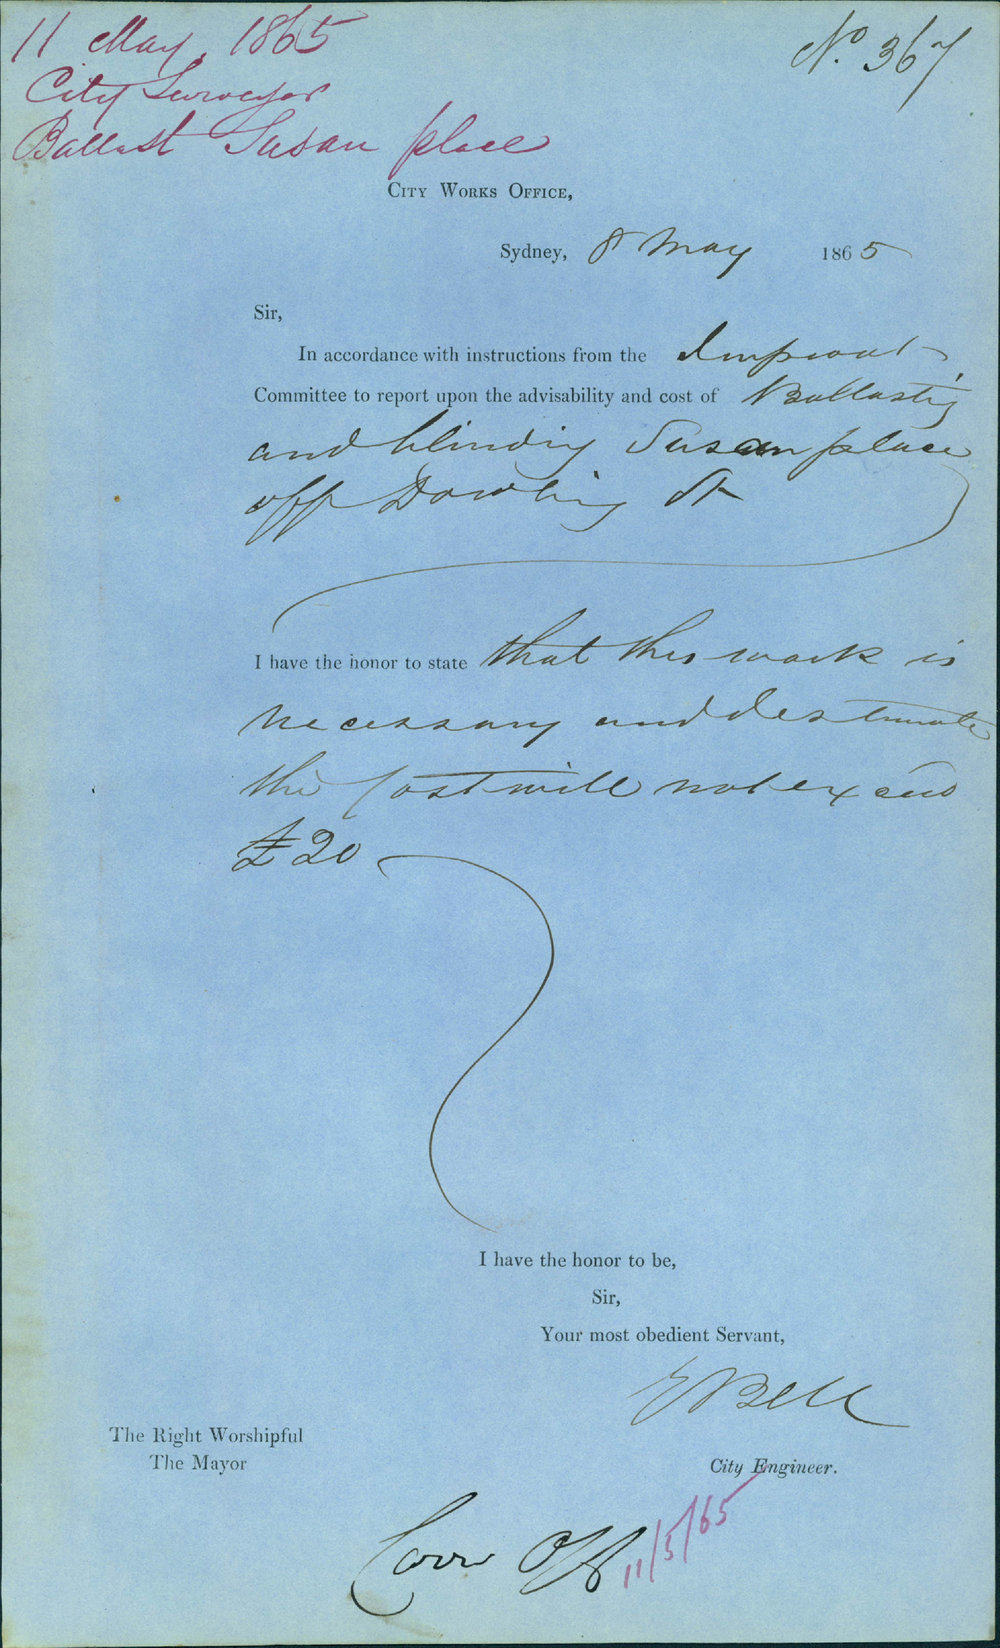 11 May, 1865
City Surveyor
Ballast Susan place
No. 367
City Works Office,
Sydney, 8 May 1865
Sir,
In accordance with instructions from the Improvt
Committee to report upon the advisability and cost of Ballastig
and blinding Susan place
off Dowling St
I have the honor to state that this work is
necessary and I estimate
the Cost will not exceed
£20
I have the honor to be,
Sir,
Your most obedient Servant,
E Bell
The Right Worshipful
The Mayor
City Engineer.
11/5/65